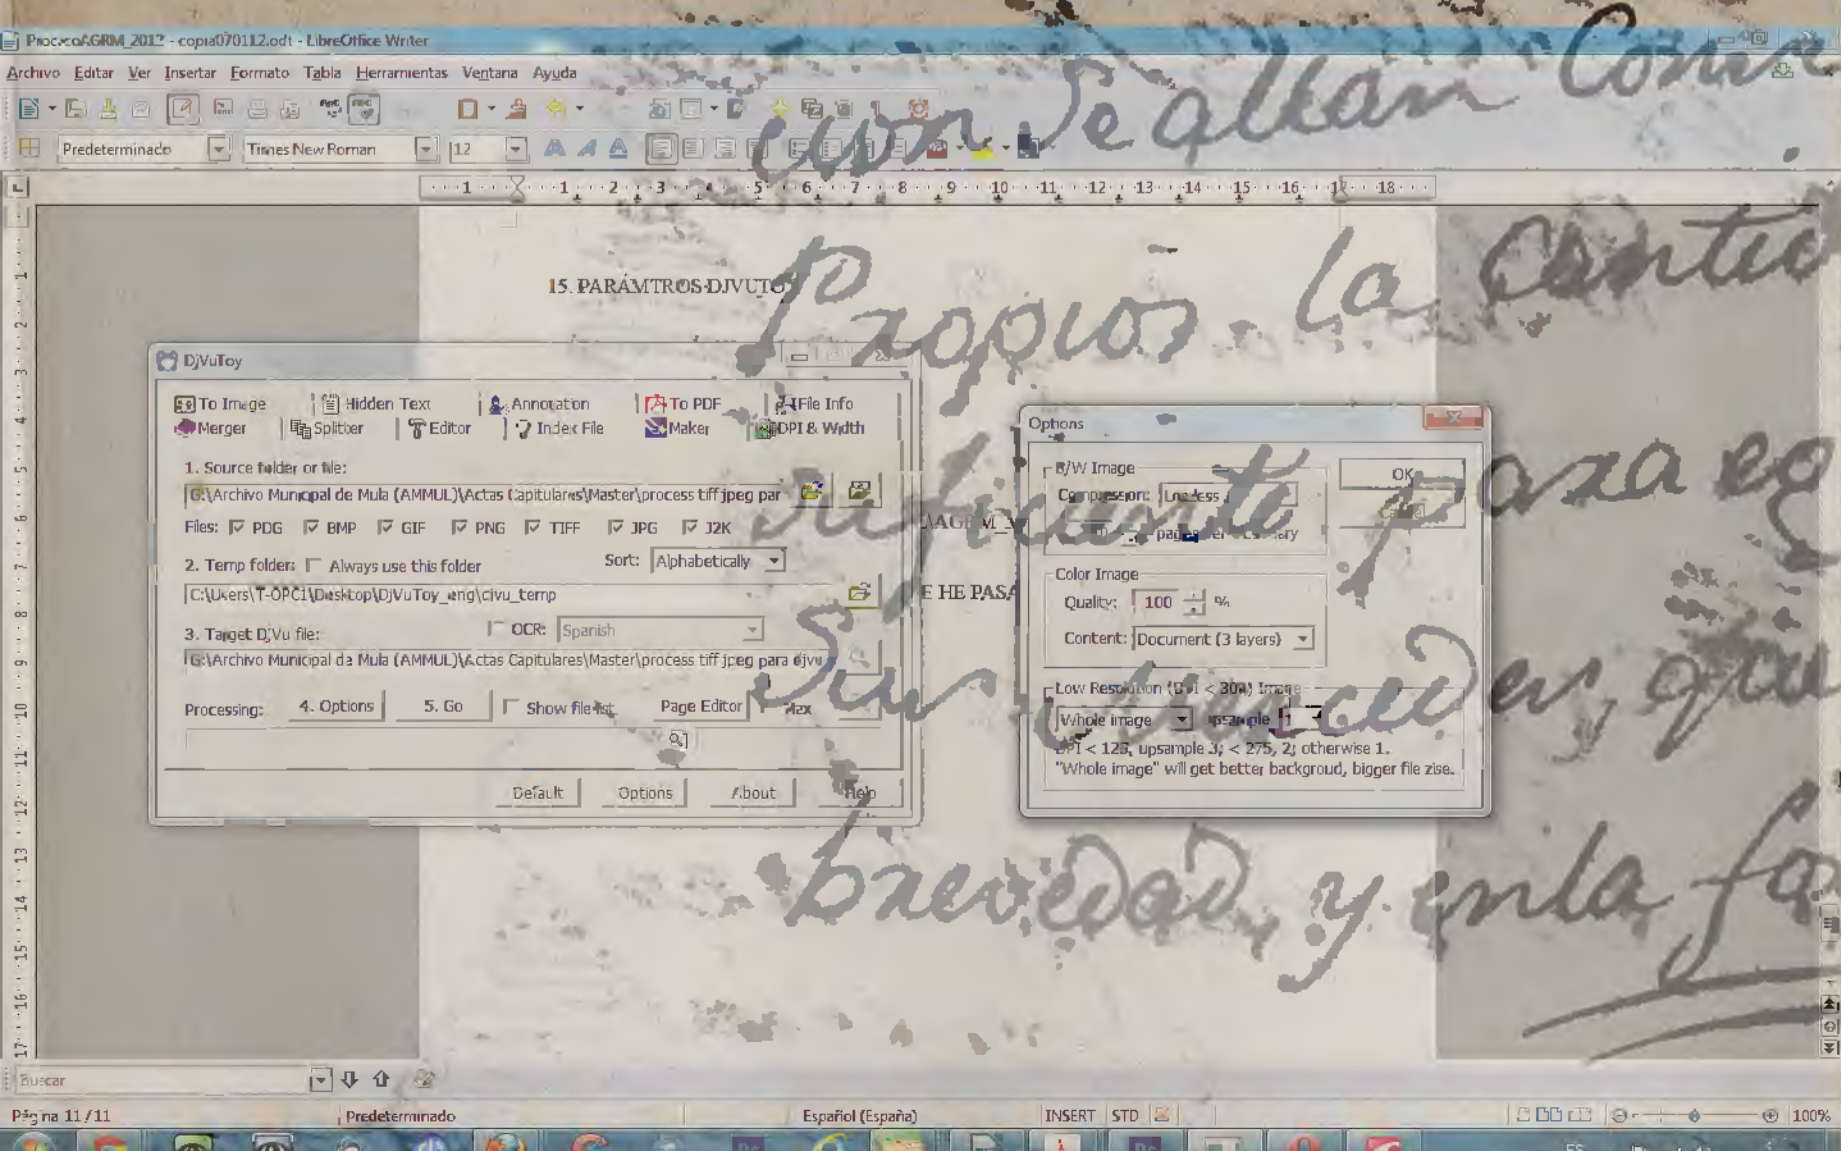 ProcesoAGRM_2012 - copia070112.odt - LibreOffice Writer
Archivo Editar Ver Insertar Formato Tabla Herramientas Ventana Ayuda
Predeterminado Times New Roman 12
1 1 2 3 4 5 6 7 8 9 10 11 12 13 14 15 16 17 18
cion se allan
Propios. la
suficiente para
Sin
brevedad, y enla
15. PARÁMTROS DJVUTOY
DjVuToy
To Image Hidden Text Annotation To PDF File Info
Merger Splitter Editor Index File Maker DPI & Width
1. Source folder or file:
G:\Archivo Municipal de Mula (AMMUL)\Actas Capitulares\Master\process tiff jpeg par
Files: PDG BMP GIF PNG TIFF JPG J2K
2. Temp folder: Always use this folder Sort: Alphabetically
C:\Users\T-OPC1\Desktop\DjVuToy_eng\djvu_temp
3. Target DjVu file: OCR: Spanish
G:\Archivo Municipal de Mula (AMMUL)\Actas Capitulares\Master\process tiff jpeg para djvu
Processing: 4. Options 5. Go Show file list Page Editor Max
Default Options About Help
E HE PASA
Options
B/W Image
Compression: Lossless
OK
Cancel
pages per dictionary
Color Image
Quality: 100 %
Content: Document (3 layers)
Low Resolution (DPI < 300) Image
Whole image upsample 1
DPI < 125, upsample 3; < 275, 2; otherwise 1.
"Whole image" will get better backgroud, bigger file zise.
Buscar
Página 11 / 11 Predeterminado Español (España) INSERT STD 100%
ES